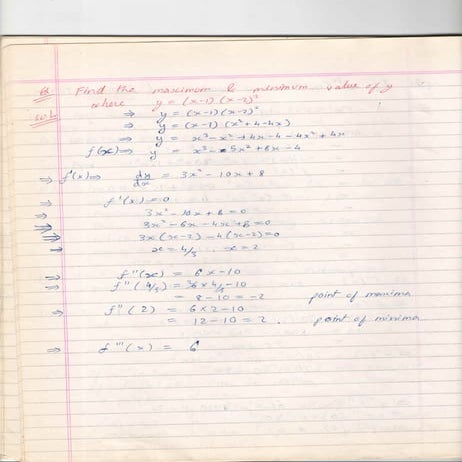 Q Find the maximum & minimum value of y
where y = (x-1)(x-2)²
Sol. ⇒ y = (x-1)(x-2)²
⇒ y = (x-1)(x²+4-4x)
⇒ y = x³-x²+4x-4-4x²+4x
f(x) ⇒ y = x³-5x²+8x-4
⇒ f'(x) ⇒ dy/dx = 3x²-10x+8
⇒ f'(x) = 0
⇒ 3x²-10x+8=0
3x²-6x-4x+8=0
3x(x-2)-4(x-2)=0
x = 4/3 x = 2
⇒ f''(x) = 6x-10
⇒ f''(4/3) = 6×4/3-10
= 8-10 = -2 point of maxima
⇒ f''(2) = 6×2-10
= 12-10 = 2. point of minima
⇒ f'''(x) = 6